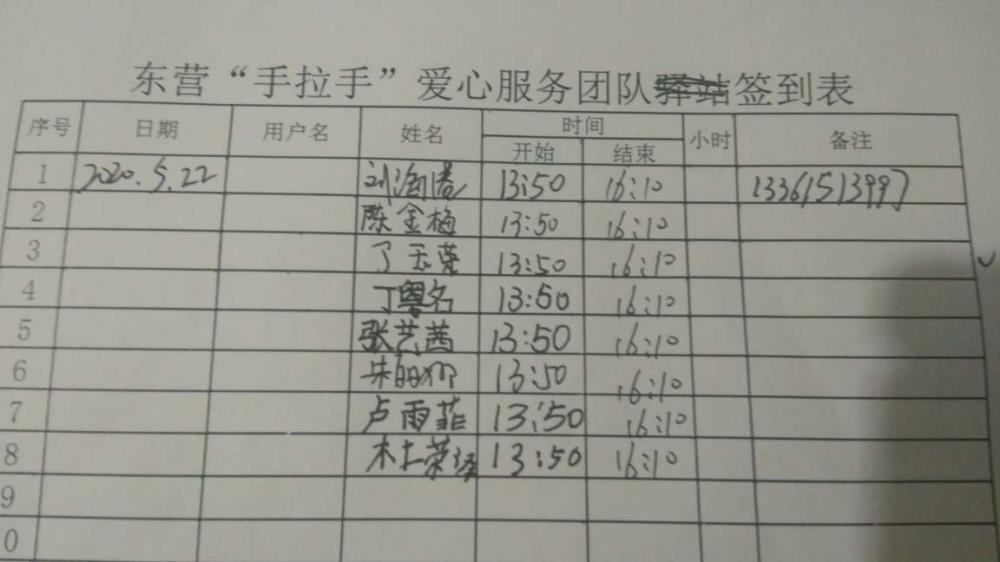 东营“手拉手”爱心服务团队驿站签到表
序号 日期 用户名 姓名 时间 小时 备注
开始 结束
1 2020.5.22 刘海 13:50 16:10 13361513997
2 陈金梅 13:50 16:10
3 丁玉荣 13:50 16:10
4 丁粤名 13:50 16:10
5 张艺茜 13:50 16:10
6 朱 13:50 16:10
7 卢雨菲 13:50 16:10
8 13:50 16:10
9
0